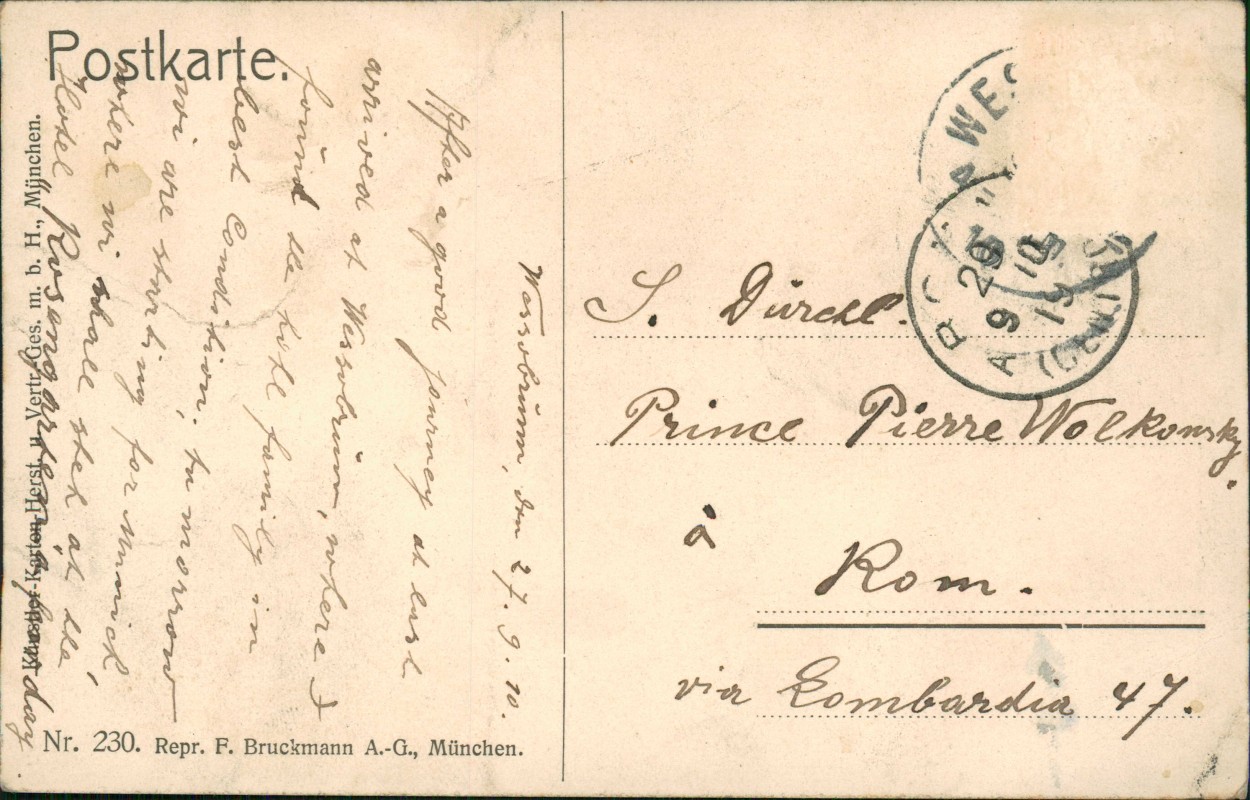 Postkarte.
Wessobrunn, den 27.9.10.
After a good journey at last
arrived at Wessobrunn, where I
found the hohl family in
best Condition. to morrow
wi are starting for Munich
where wi shall steh at the
Hotel Rosengarten, a day
Künstler-Karten-Herst. u. Vertr. Ges. m. b. H., München.
Nr. 230. Repr. F. Bruckmann A.-G., München.
WES
ROM
20
9 10
19
S. Durchl.
Prince Pierre Wolkonsky.
à
Rom.
via Lombardia 47.